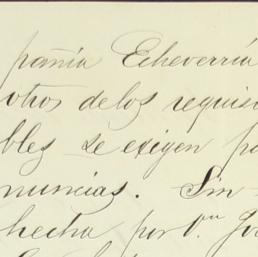 pañia Echeverría
otros de los requis
bles se exigen pa
nuncias. Sin
hecha por